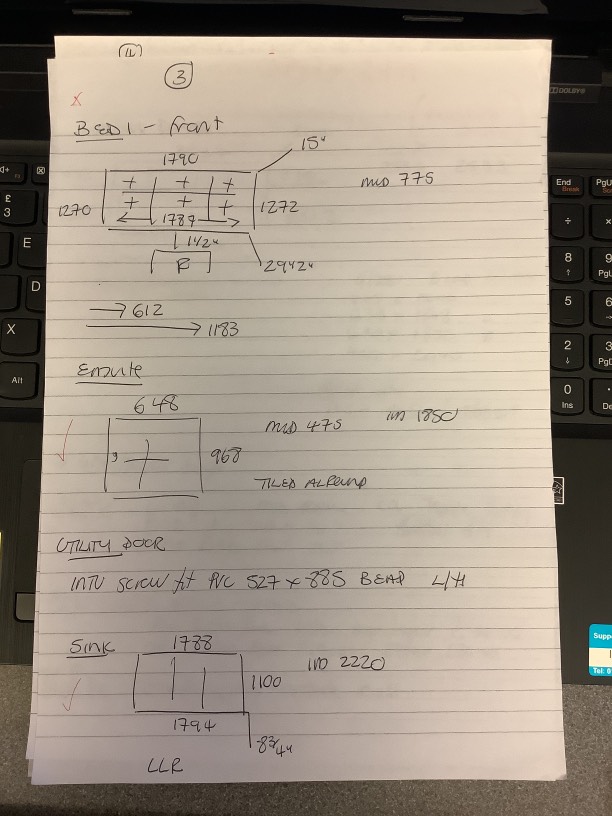 3
x
BED 1 - front
1790
15"
MID 775
+ + +
+ + +
1270
1787
1272
1 1/2"
R
29 1/2"
612
1183
Ensuite
648
MID 475
968
TILED ALROUND
UTILITY DOOR
INTU SCREW fit PVC 527 x 885 BEAD L/H
SINK
1788
2220
1100
1794
8 3/4"
LLR
DOLBY
End
Break
PgU
£
3
E
D
X
Alt
÷
8
9
PgU
5
6
2
3
PgD
0
Ins
De
Supp
Tel: 0